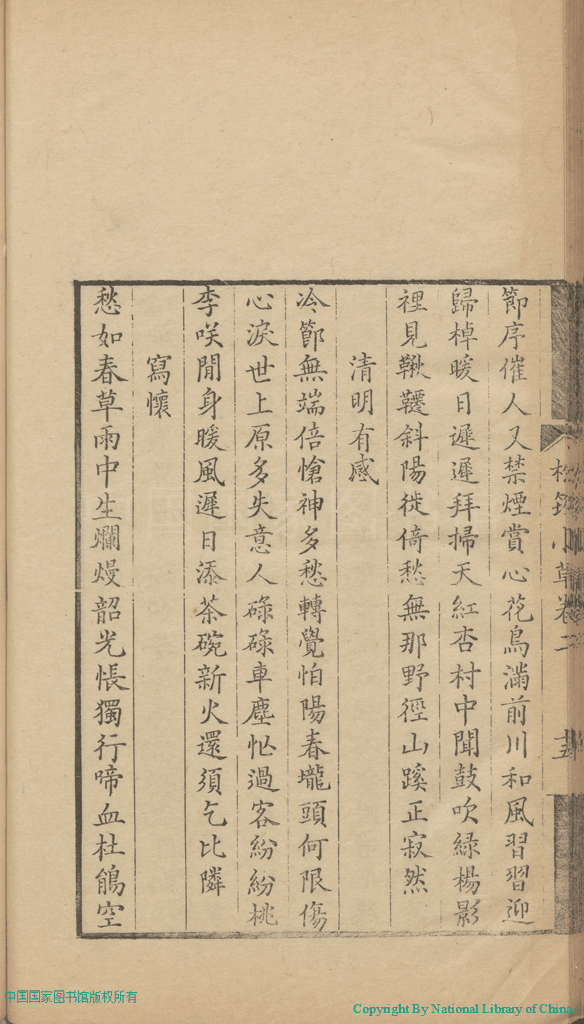 節序催人又禁煙賞心花鳥滿前川和風習習迎
歸棹暖日遲遲拜掃天紅杏村中聞鼓吹綠楊影
裡見鞦韆斜陽徙倚愁無那野徑山蹊正寂然
清明有感
冷節無端倍愴神多愁轉覺怕陽春壠頭何限傷
心淚世上原多失意人碌碌車塵忙過客紛紛桃
李咲閒身暖風遲日添茶碗新火還須乞比隣
寫懷
愁如春草雨中生爛熳韶光悵獨行啼血杜鵑空
小草卷二
中国国家图书馆版权所有
Copyright By National Library of China